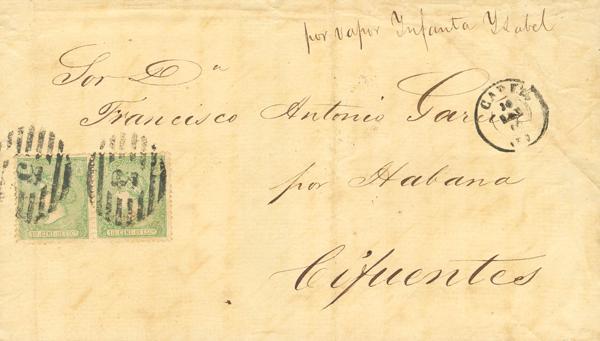 por vapor Ynfanta Ysabel
Sor Dn
Francisco Antonio Garcia
por Habana
Cifuentes
CADIZ
30
10 CENT. DE ESCO.
10 CENT. DE ESCO.